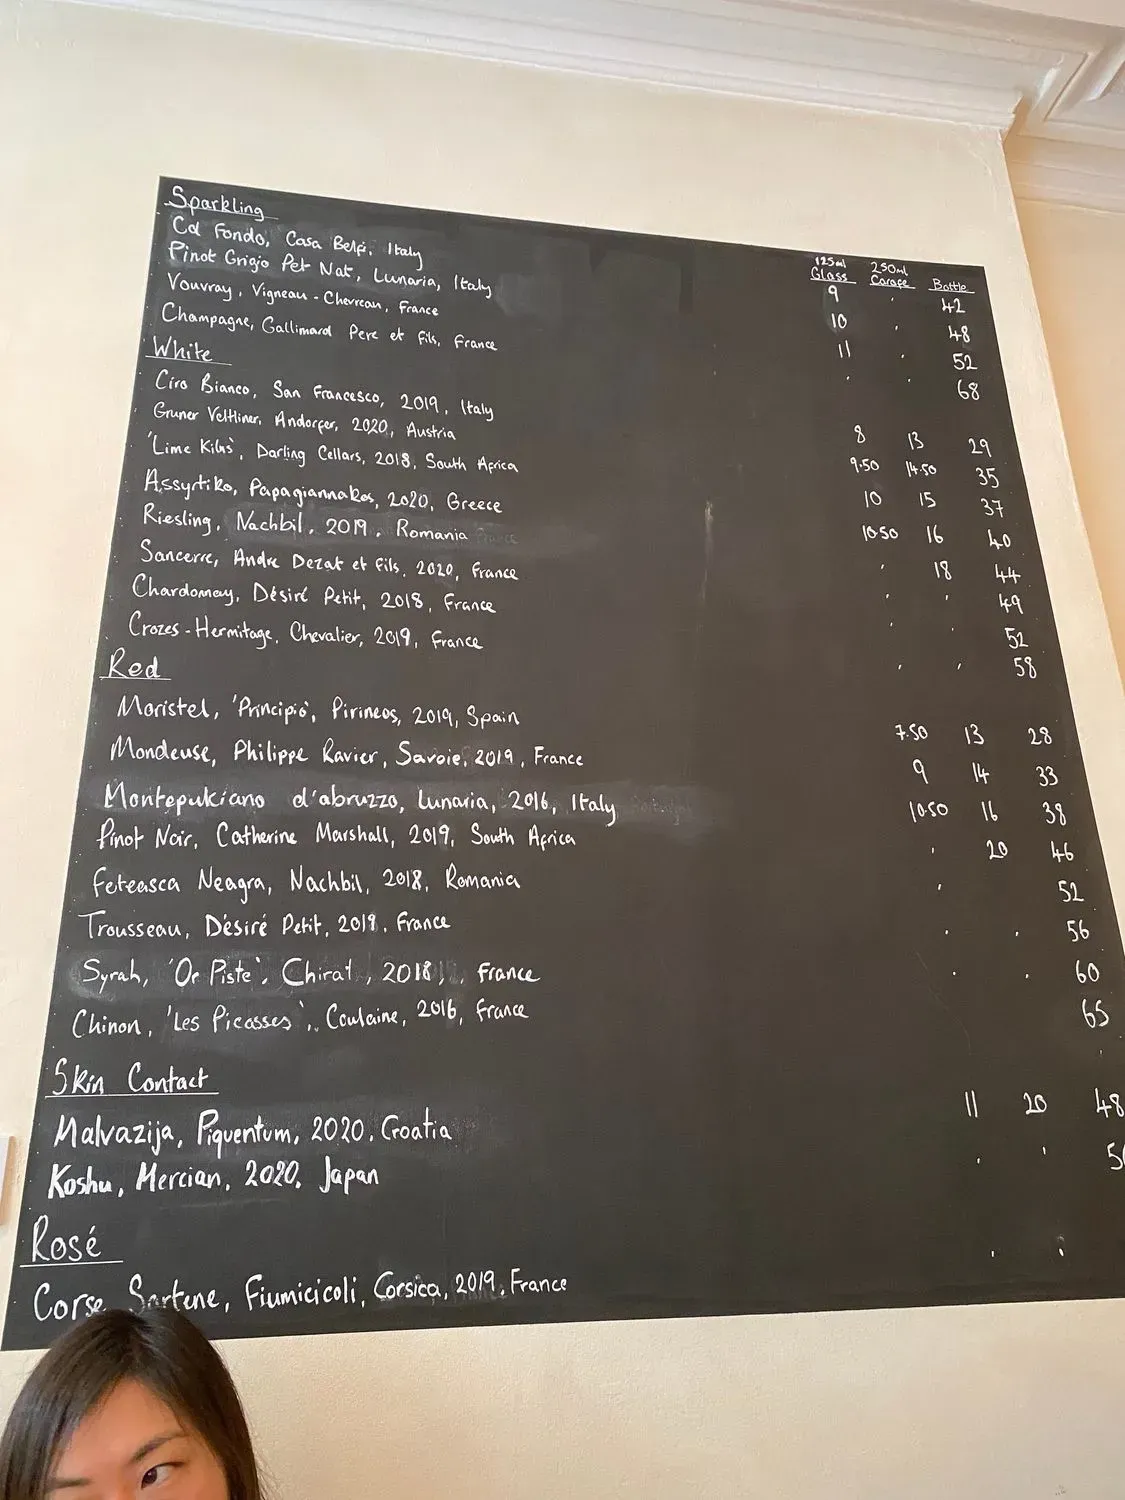 Sparkling 125ml Glass 250ml Carafe Bottle
Col Fondo, Casa Belfi, Italy 9 . 42
Pinot Grigio Pet Nat, Lunaria, Italy 10 . 48
Vouvray, Vigneau-Chevreau, France 11 . 52
Champagne, Gallimard Pere et fils, France . . 68
White
Ciro Bianco, San Francesco, 2019, Italy 8 13 29
Gruner Veltliner, Andorfer, 2020, Austria 9.50 14.50 35
'Lime Kilns', Darling Cellars, 2018, South Africa 10 15 37
Assyrtiko, Papagiannakos, 2020, Greece 10.50 16 40
Riesling, Nachbil, 2019, Romania . 18 44
Sancerre, Andre Dezat et fils, 2020, France . . 49
Chardonnay, Désiré Petit, 2018, France . . 52
Crozes-Hermitage, Chevalier, 2019, France . . 58
Red
Moristel, 'Principio', Pirineos, 2019, Spain 7.50 13 28
Mondeuse, Philippe Ravier, Savoie, 2019, France 9 14 33
Montepukiano d'abruzzo, Lunaria, 2016, Italy 10.50 16 38
Pinot Noir, Catherine Marshall, 2019, South Africa . 20 46
Feteasca Neagra, Nachbil, 2018, Romania . 52
Trousseau, Désiré Petit, 2019, France . . 56
Syrah, 'Or Piste', Chirat, 2018, France . . 60
Chinon, 'Les Picasses', Coulaine, 2016, France 65
Skin Contact
Malvazija, Piquentum, 2020, Croatia 11 20 48
Koshu, Mercian, 2020, Japan . .
Rosé
Corse Sartene, Fiumicicoli, Corsica, 2019, France . .